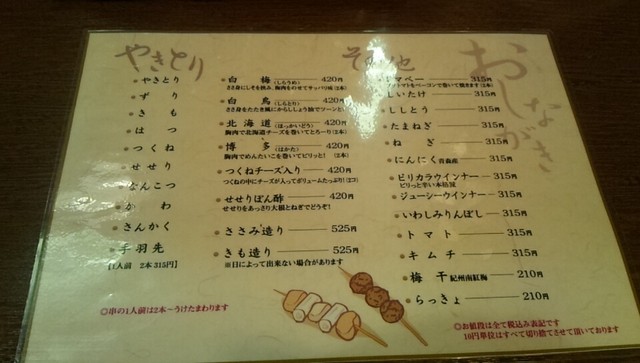 おしながき
やきとり
やきとり
ずり
きも
はつ
つくね
せせり
なんこつ
かわ
さんかく
手羽先
【1人前 2本315円】
◎串の1人前は2本〜うけたまわります
白梅(しらうめ)420円
ささ身にしそを挟み、胸肉をのせてサッパリ味(2本)
白鳥(しらとり)420円
ささ身をたたき風にからししょう油でツーンと
北海道(ほっかいどう)420円
胸肉で北海道チーズを巻いてとろ〜り(2本)
博多(はかた)420円
胸肉でめんたいこを巻いてピリッと!(2本)
つくねチーズ入り420円
つくねの中にチーズが入ってボリュームたっぷり!(2コ)
せせりぽん酢420円
せせりをあっさり大根とねぎでどうぞ!
ささみ造り525円
きも造り525円
※日によって出来ない場合があります
その他
トマベー315円
プチトマトをベーコンで巻いて焼きます(2本)
しいたけ315円
ししとう315円
たまねぎ315円
ねぎ315円
にんにく青森産315円
ピリカラウインナー315円
ピリっと辛い本格派
ジューシーウインナー315円
いわしみりんぼし315円
トマト315円
キムチ315円
梅干紀州南紅梅210円
らっきょ210円
◎お値段は全て税込み表記です
10円単位はすべて切り捨てさせて頂いております